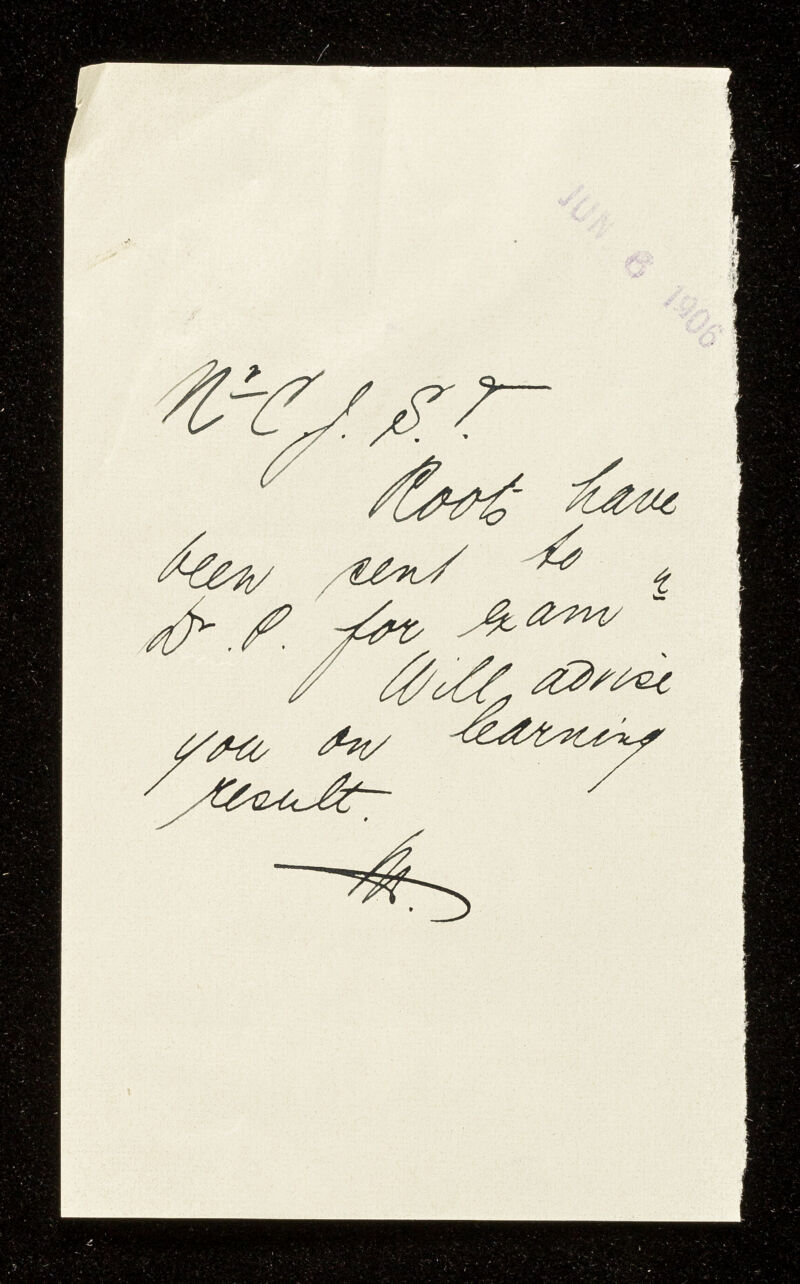 JUN 6 1906
Mr C. J. S. T.
Roots have
been sent to
Dr. P. for exam n
Will advise
you on learning
result.
M.